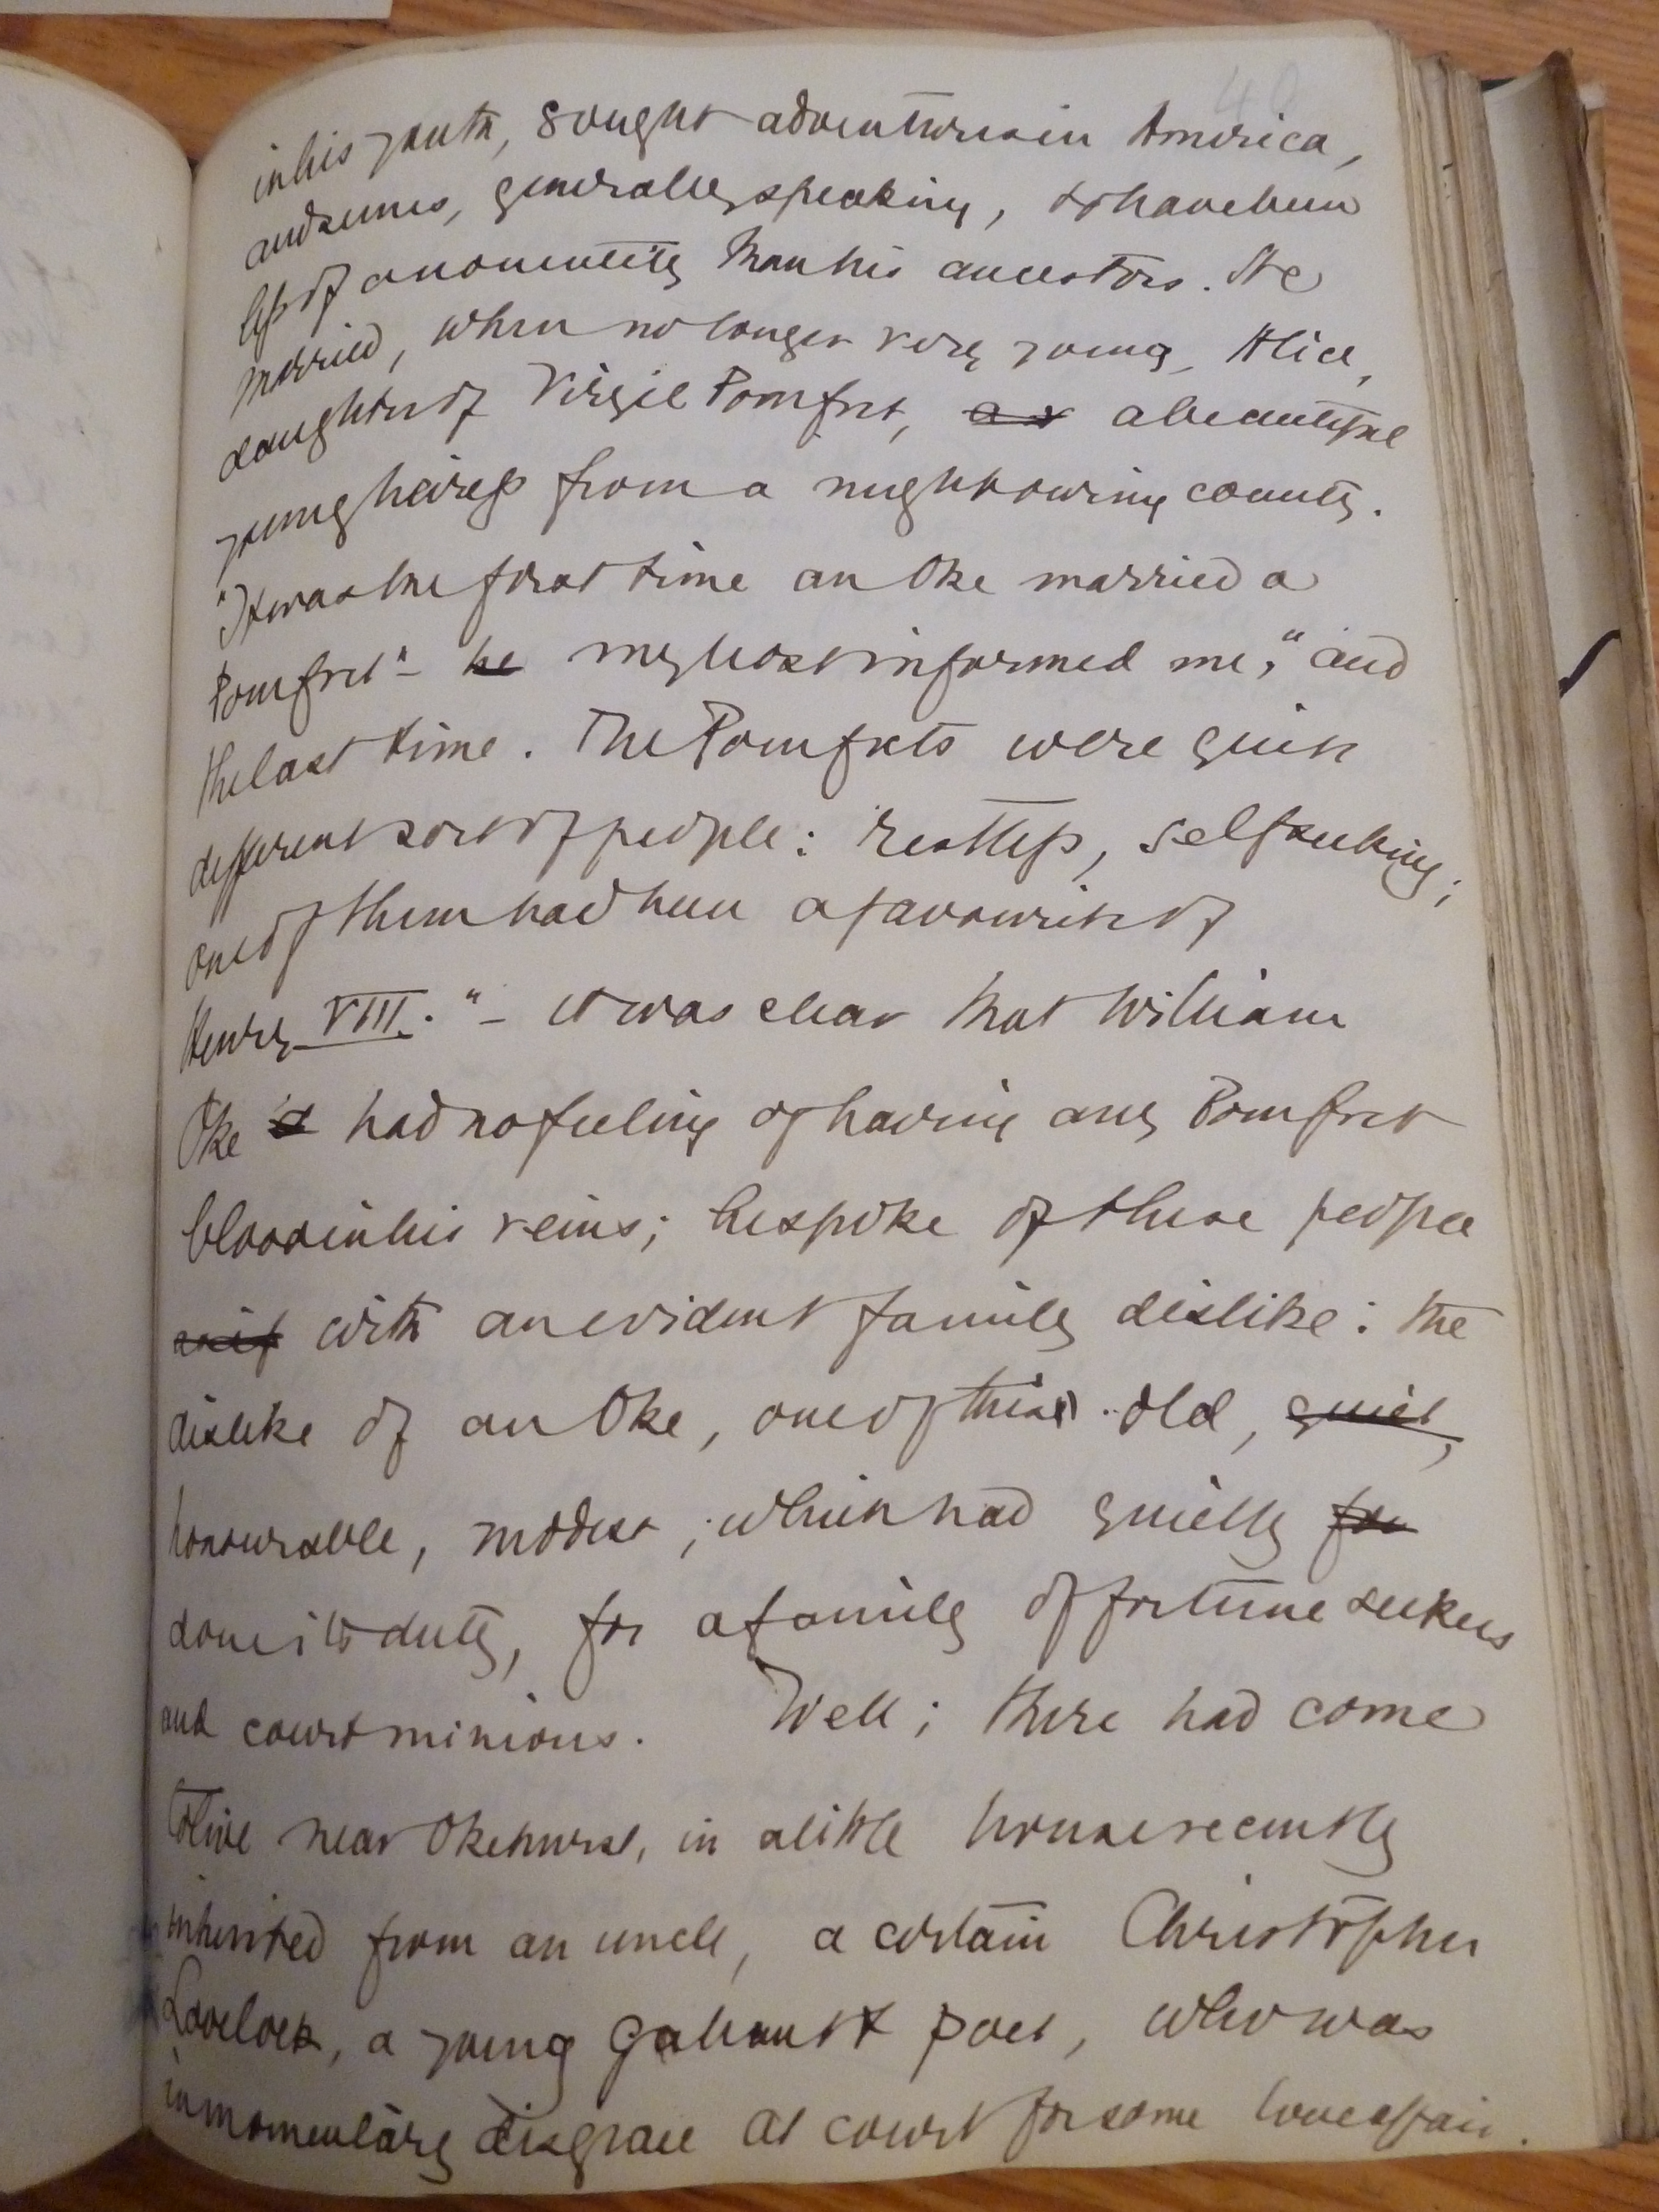 40
in his youth, sought adventures in America,
and seems, generally speaking, to have been
less of a nonentity than his ancestors. He
married, when no longer very young, Alice,
daughter of Virgil Pomfret, a beautiful
young heiress from a neighbouring county.
"It was the first time an Oke married a
Pomfret" – he my host informed me, "and
the last time. The Pomfrets were quite
different sort of people: restless, selfseeking;
one of them had been a favourite of
Henry VIII." – it was clear that William
Oke had no feeling of having any Pomfret
blood in his veins; he spoke of these people
with an evident family dislike: the
dislike of an Oke, one of the old, quiet,
honourable, modest, which had quietly for
done its duty, for a family of fortune seekers
and court minions. Well; there had come
to live near Okehurst, in a little house recently
inherited from an uncle, a certain Christopher
Lovelock, a young gallant poet, who was
in momentary disgrace at court for some love affair.